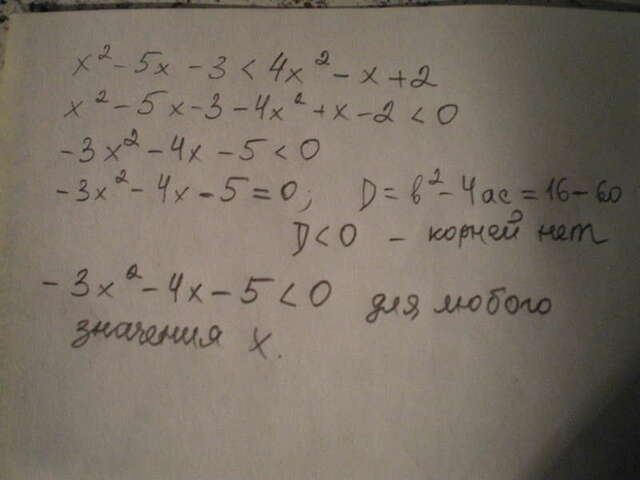 x² - 5x - 3 < 4x² - x + 2
x² - 5x - 3 - 4x² + x - 2 < 0
- 3x² - 4x - 5 < 0
- 3x² - 4x - 5 = 0; D = b² - 4ac = 16 - 60
D < 0 - корней нет
- 3x² - 4x - 5 < 0 для любого
значения x.